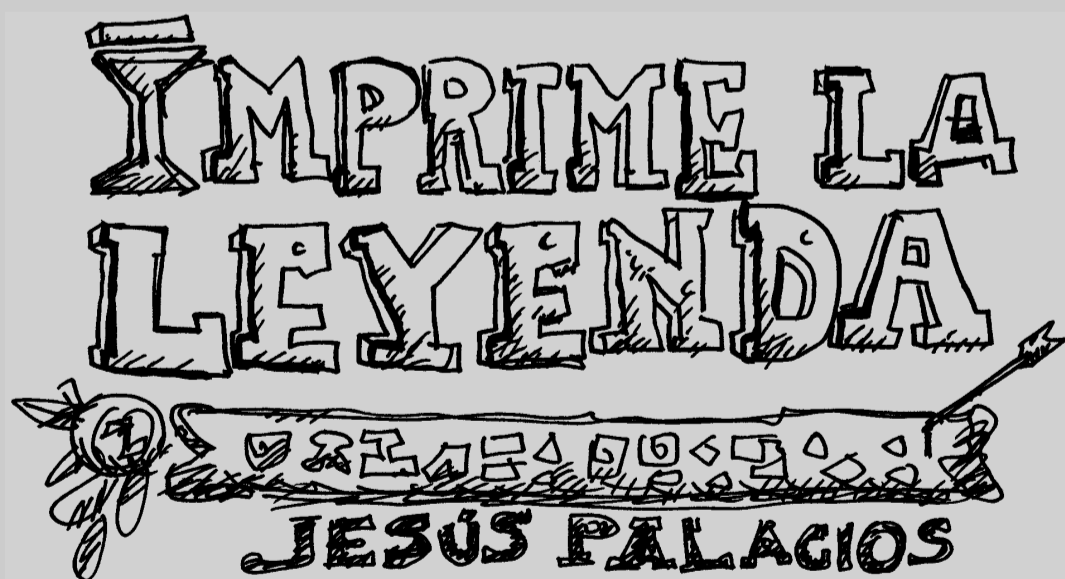 IMPRIME LA
LEYENDA
JESÚS PALACIOS